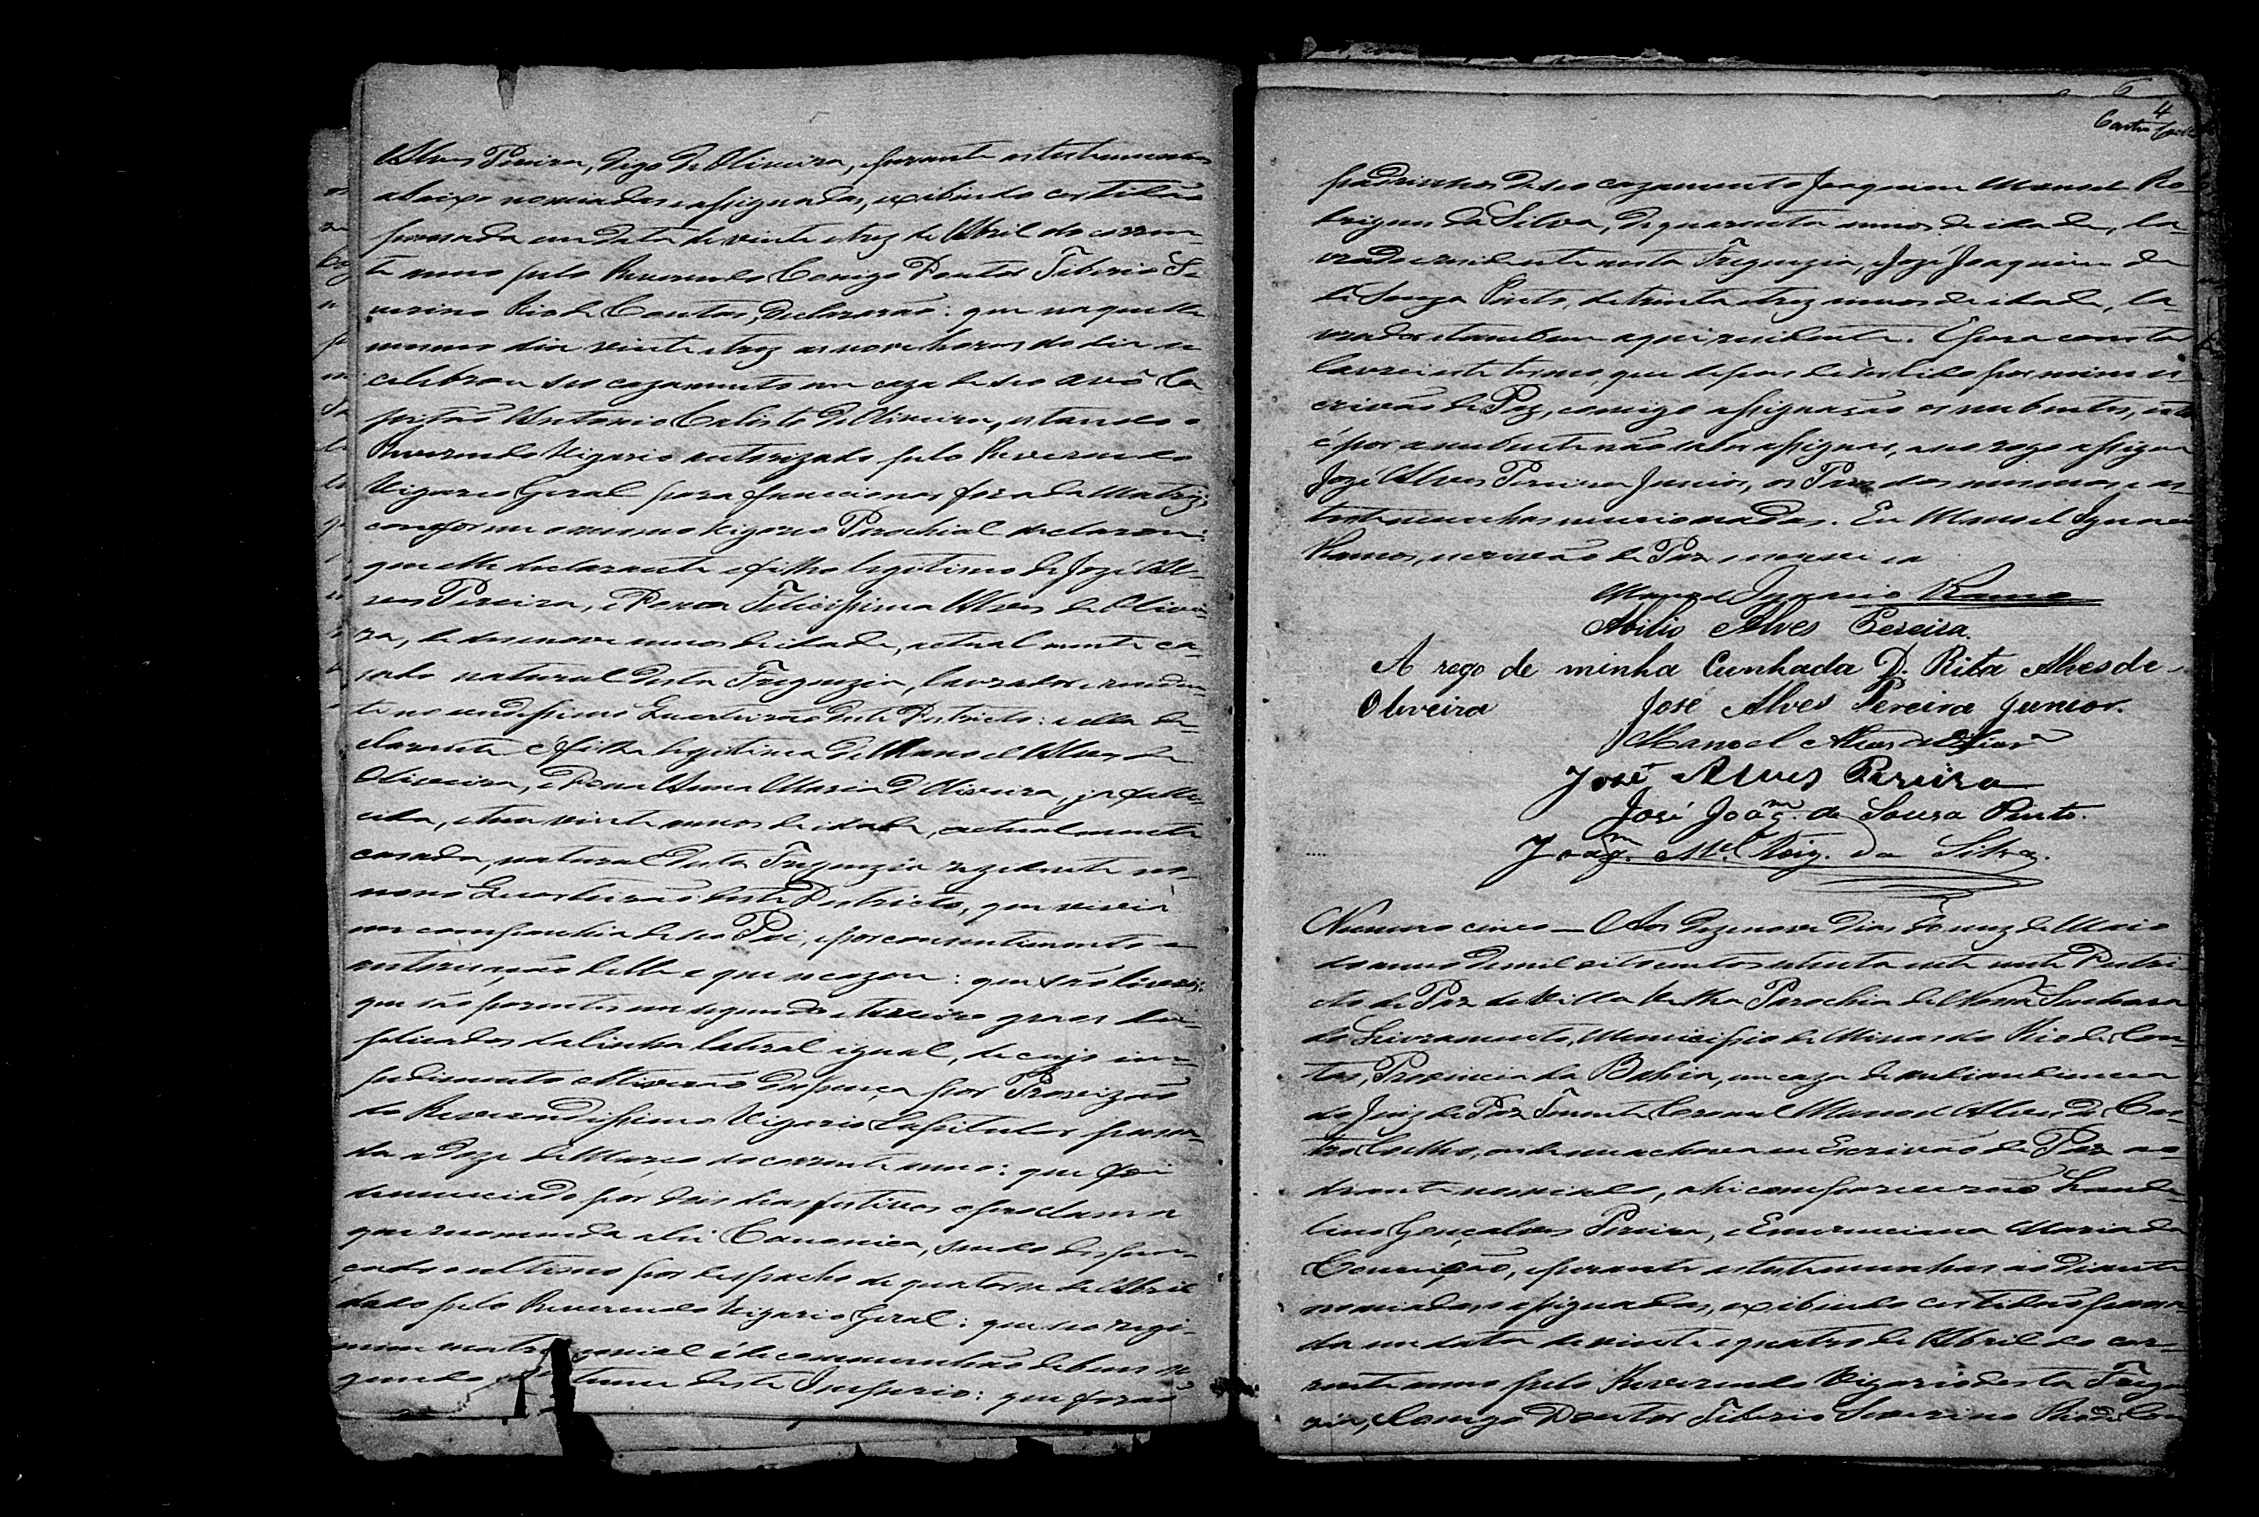 Alves Pereira, digo de Oliveira, e perante as testemunhas
abaixo nomiadas e assignadas, exibindo certidão
passada em data de vinte e trez de Abril do corren-
te anno pelo Reverendo Conigo Doutor Tiberio Se-
verino Rio de Contas, declararão: que naquelle
mesmo dia vinte e trez as nove horas do dia se
celebrou seo cazamento em caza de seo avô Ca
pitão Antonio Calisto de Oliveira, estando o
Reverendo Vigario autorizado pelo Reverendo
Vigario Geral para funccionar fora da Matriz,
conforme o mesmo Vigario Parochial declarou:
que elle declarante é filho legitimo de Jozé Al-
ves Pereira, e Dona Felicissima Alves de Olivei
ra, de desenove annos de idade, actualmente ca-
sado natural desta Freguezia, lavrador e residen-
te no undessimo Quarteirão deste Districto: e ella de-
clarante é filha legitima de Manoel Alves de
Oliveira, e Dona Anna Maria d'Oliveira, ja falle-
cida, e tem vinte annos de idade, actualmente
casada, natural desta Freguezia rezidente no
nono Quarteirão deste Districto, que vivia
em companhia de seo Pai, e por consentimento e
autorização delle é que se cazou: que são livres:
que são parentes em segundo e terceiro graos du-
plicados da linha lateral igual, de cujo im-
pedimento obtiverão dispença por Provizão
do Reverendissimo Vigario Capitular passa-
da a doze de Março do corrente anno: que foi
denunciado por dois dias festivos o proclama
que recomenda a lei Canonica, sendo dispen-
çado o ultimo por despacho de quatorse de Abril
dado pelo Reverendo Vigario Geral: que seo regi-
men matrimonial é de communhão de bens se
gundo o costume deste Imperio: que forão
6
4
Castro Coelho
padrinhos de seo cazamento Joaquim Manoel Ro-
drigues da Silva, de quarenta annos de idade, la-
vrador e residente nesta Freguezia, e Jozé Joaquim de
de Souza Pinto, de trinta e trez annos de idade, la-
vrador e tambem aqui residente. E para constar
lavrei este termo, que depois de ser lido por mim es-
crivão de Paz, comigo assignarão os nubentes, isto
é por a nubente não saber assignar, a seo rogo assigna
Jozé Alves Pereira Junior, os Pais dos mesmos e as
testemunhas mencionadas. Eu Manoel Ignacio
Ramos, escrivão de Paz o escrevi
Manoel Ignacio Ramos
Abilio Alves Pereira.
A rogo de minha Cunhada D. Rita Alves de
Oliveira José Alves Pereira Junior.
Manoel Alves de Olivrª
José Alves Pereira
José Joaqm. de Souza Pinto.
Joaqm. Mel. Roiz. da Silva.
Numero cinco — Aos dezenove dias do mez de Maio
do anno de mil oitocentos setenta e sete neste Distri
cto de Paz de Villa Velha Parochia de Nossa Senhora
do Livramento, Municipio de Minas do Rio de Con-
tas, Provincia da Bahia, em caza de audiencia
do Juiz de Paz Tenente Coronel Manoel Alves de Cas-
tro Coelho, onde me achava eu Escrivão de Paz ao
diante nomiado, ahi comparecerão
lino Gonçalves Pereira, e Emerenciana Maria da
Conceição, e perante as testemunhas ao diante
nomiadas e assignadas, exibindo certidão passa-
da em data de vinte e quatro de Abril do cor-
rente anno pelo Reverendo Vigario desta Fregue
zia, Conigo Doutor Tiberio Severino Rio de Con